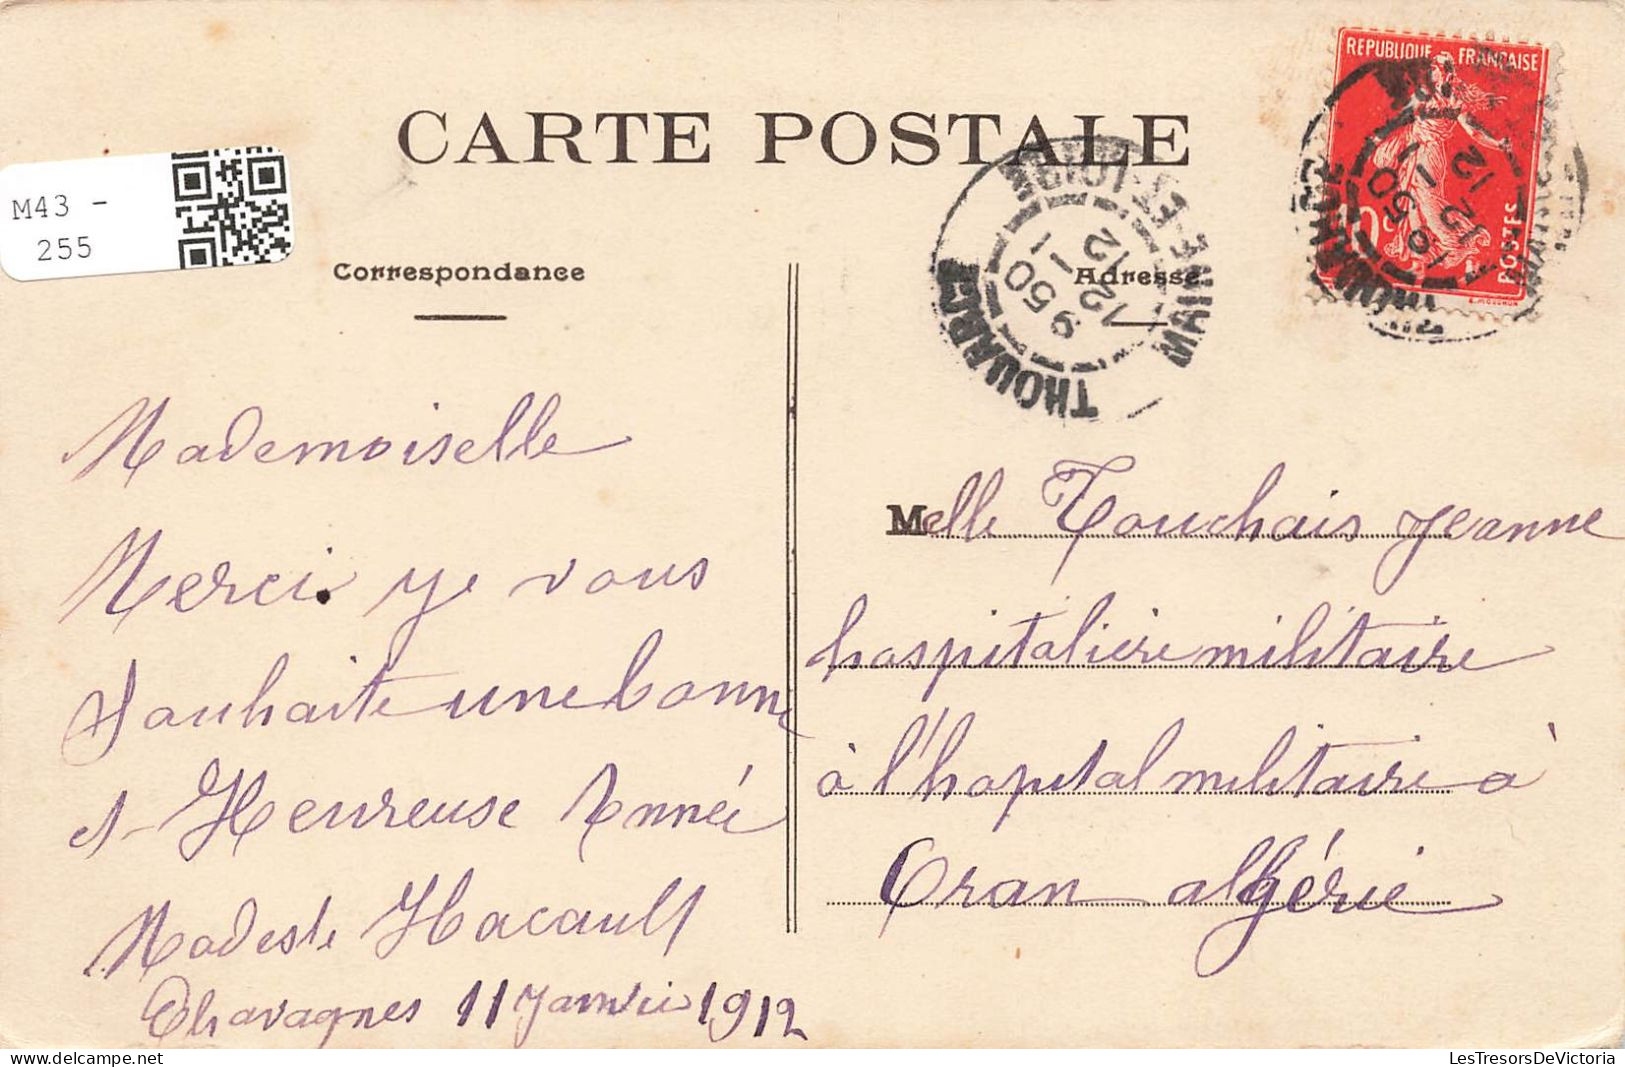 CARTE POSTALE
M43 -
255
Correspondance
Adresse
REPUBLIQUE FRANÇAISE
10c
POSTES
E. MOUCHON
THOUARCÉ
MAINE-ET-LOIRE
9 50
12 1
12
THOUARCÉ
9 50
12 1
12
Mademoiselle
Merci. je vous
souhaite une bonne
et Heureuse Année
Modeste Hacault
Chavagnes 11 Janvier 1912
Melle Touchais Jeanne
hospitalière militaire
à l'hopital militaire à
Oran algérie
LesTresorsDeVictoria